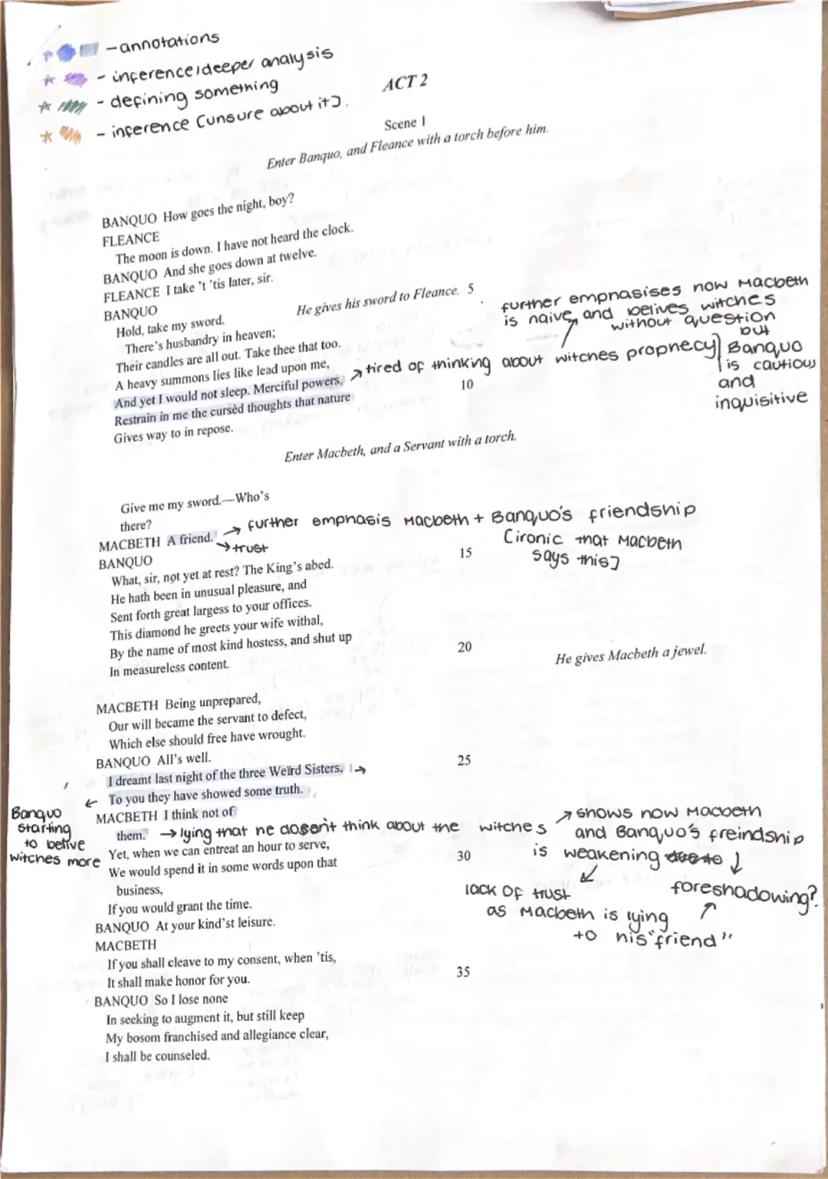 -annotations
- inference/deeper analysis
- defining something
- inference (unsure about it).
ACT 2
Scene 1
Enter Banquo, and Fleance with a torch before him.
BANQUO How goes the night, boy?
FLEANCE
The moon is down. I have not heard the clock.
BANQUO And she goes down at twelve.
FLEANCE I take 't 'tis later, sir.
BANQUO
He gives his sword to Fleance. 5
Hold, take my sword.
There's husbandry in heaven;
Their candles are all out. Take thee that too.
A heavy summons lies like lead upon me,
And yet I would not sleep. Merciful powers,
10
Restrain in me the cursèd thoughts that nature
Gives way to in repose.
further emphasises now Macbeth
is naive and belives witches
without question
but
Banquo
is cautious
and
inquisitive
→ tired of thinking about witches prophecy
Enter Macbeth, and a Servant with a torch.
Give me my sword.—Who's
there?
MACBETH A friend.
→ further emphasis Macbeth + Banquo's friendship
→ trust
(ironic that Macbeth
says this)
BANQUO
15
What, sir, not yet at rest? The King's abed.
He hath been in unusual pleasure, and
Sent forth great largess to your offices.
This diamond he greets your wife withal,
By the name of most kind hostess, and shut up
20
In measureless content.
He gives Macbeth a jewel.
MACBETH Being unprepared,
Our will became the servant to defect,
Which else should free have wrought.
BANQUO All's well.
25
I dreamt last night of the three Weïrd Sisters. →
To you they have showed some truth.
← Banquo
starting
to belive
witches more
MACBETH I think not of
them.
→ lying that he doesn't think about the witches
→ shows now Macbeth
and Banquo's freindship
is weakening due to
lack of trust
as Macbeth is lying
to his "friend"
foreshadowing?
Yet, when we can entreat an hour to serve,
30
We would spend it in some words upon that
business,
If you would grant the time.
BANQUO At your kind'st leisure.
MACBETH
If you shall cleave to my consent, when 'tis,
35
It shall make honor for you.
BANQUO So I lose none
In seeking to augment it, but still keep
My bosom franchised and allegiance clear,
I shall be counseled.